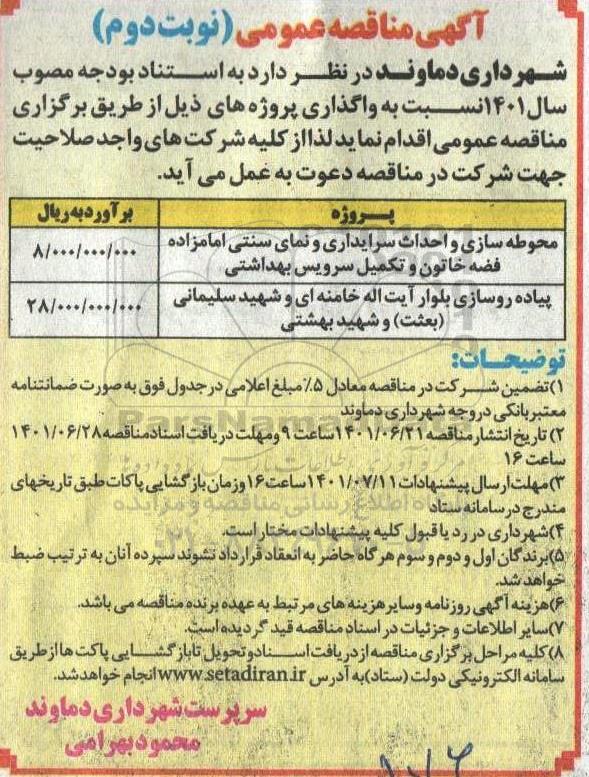 آگهی مناقصه عمومی (نوبت دوم)
شهرداری دماوند در نظر دارد به استناد بودجه مصوب
سال ۱۴۰۱ نسبت به واگذاری پروژه های ذیل از طریق برگزاری
مناقصه عمومی اقدام نماید لذا از کلیه شرکت های واجد صلاحیت
جهت شرکت در مناقصه دعوت به عمل می آید.
پروژه برآورد به ریال
محوطه سازی و احداث سرایداری و نمای سنتی امامزاده
فضه خاتون و تکمیل سرویس بهداشتی
۸/۰۰۰/۰۰۰/۰۰۰
پیاده روسازی بلوار آیت اله خامنه ای و شهید سلیمانی
(بعثت) و شهید بهشتی
۲۸/۰۰۰/۰۰۰/۰۰۰
توضیحات:
۱) تضمین شرکت در مناقصه معادل ۵٪ مبلغ اعلامی در جدول فوق به صورت ضمانتنامه
معتبر بانکی در وجه شهرداری دماوند
۲) تاریخ انتشار مناقصه ۱۴۰۱/۰۶/۲۱ ساعت ۹ و مهلت دریافت اسناد مناقصه ۱۴۰۱/۰۶/۲۸
ساعت ۱۶
۳) مهلت ارسال پیشنهادات ۱۴۰۱/۰۷/۱۱ ساعت ۱۶ و زمان بازگشایی پاکات طبق تاریخهای
مندرج در سامانه ستاد
۴) شهرداری در رد یا قبول کلیه پیشنهادات مختار است.
۵) برندگان اول و دوم و سوم هرگاه حاضر به انعقاد قرارداد نشوند سپرده آنان به ترتیب ضبط
خواهد شد.
۶) هزینه آگهی روزنامه و سایر هزینه های مرتبط به عهده برنده مناقصه می باشد.
۷) سایر اطلاعات و جزئیات در اسناد مناقصه قید گردیده است.
۸) کلیه مراحل برگزاری مناقصه از دریافت اسناد و تحویل تا بازگشایی پاکت ها از طریق
سامانه الکترونیکی دولت (ستاد) به آدرس www.setadiran.ir انجام خواهد شد.
سرپرست شهرداری دماوند
محمود بهرامی